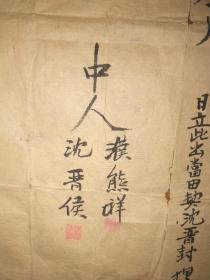 日立此出當田契沈晋封
中人
濮熊祥
沈晋侯